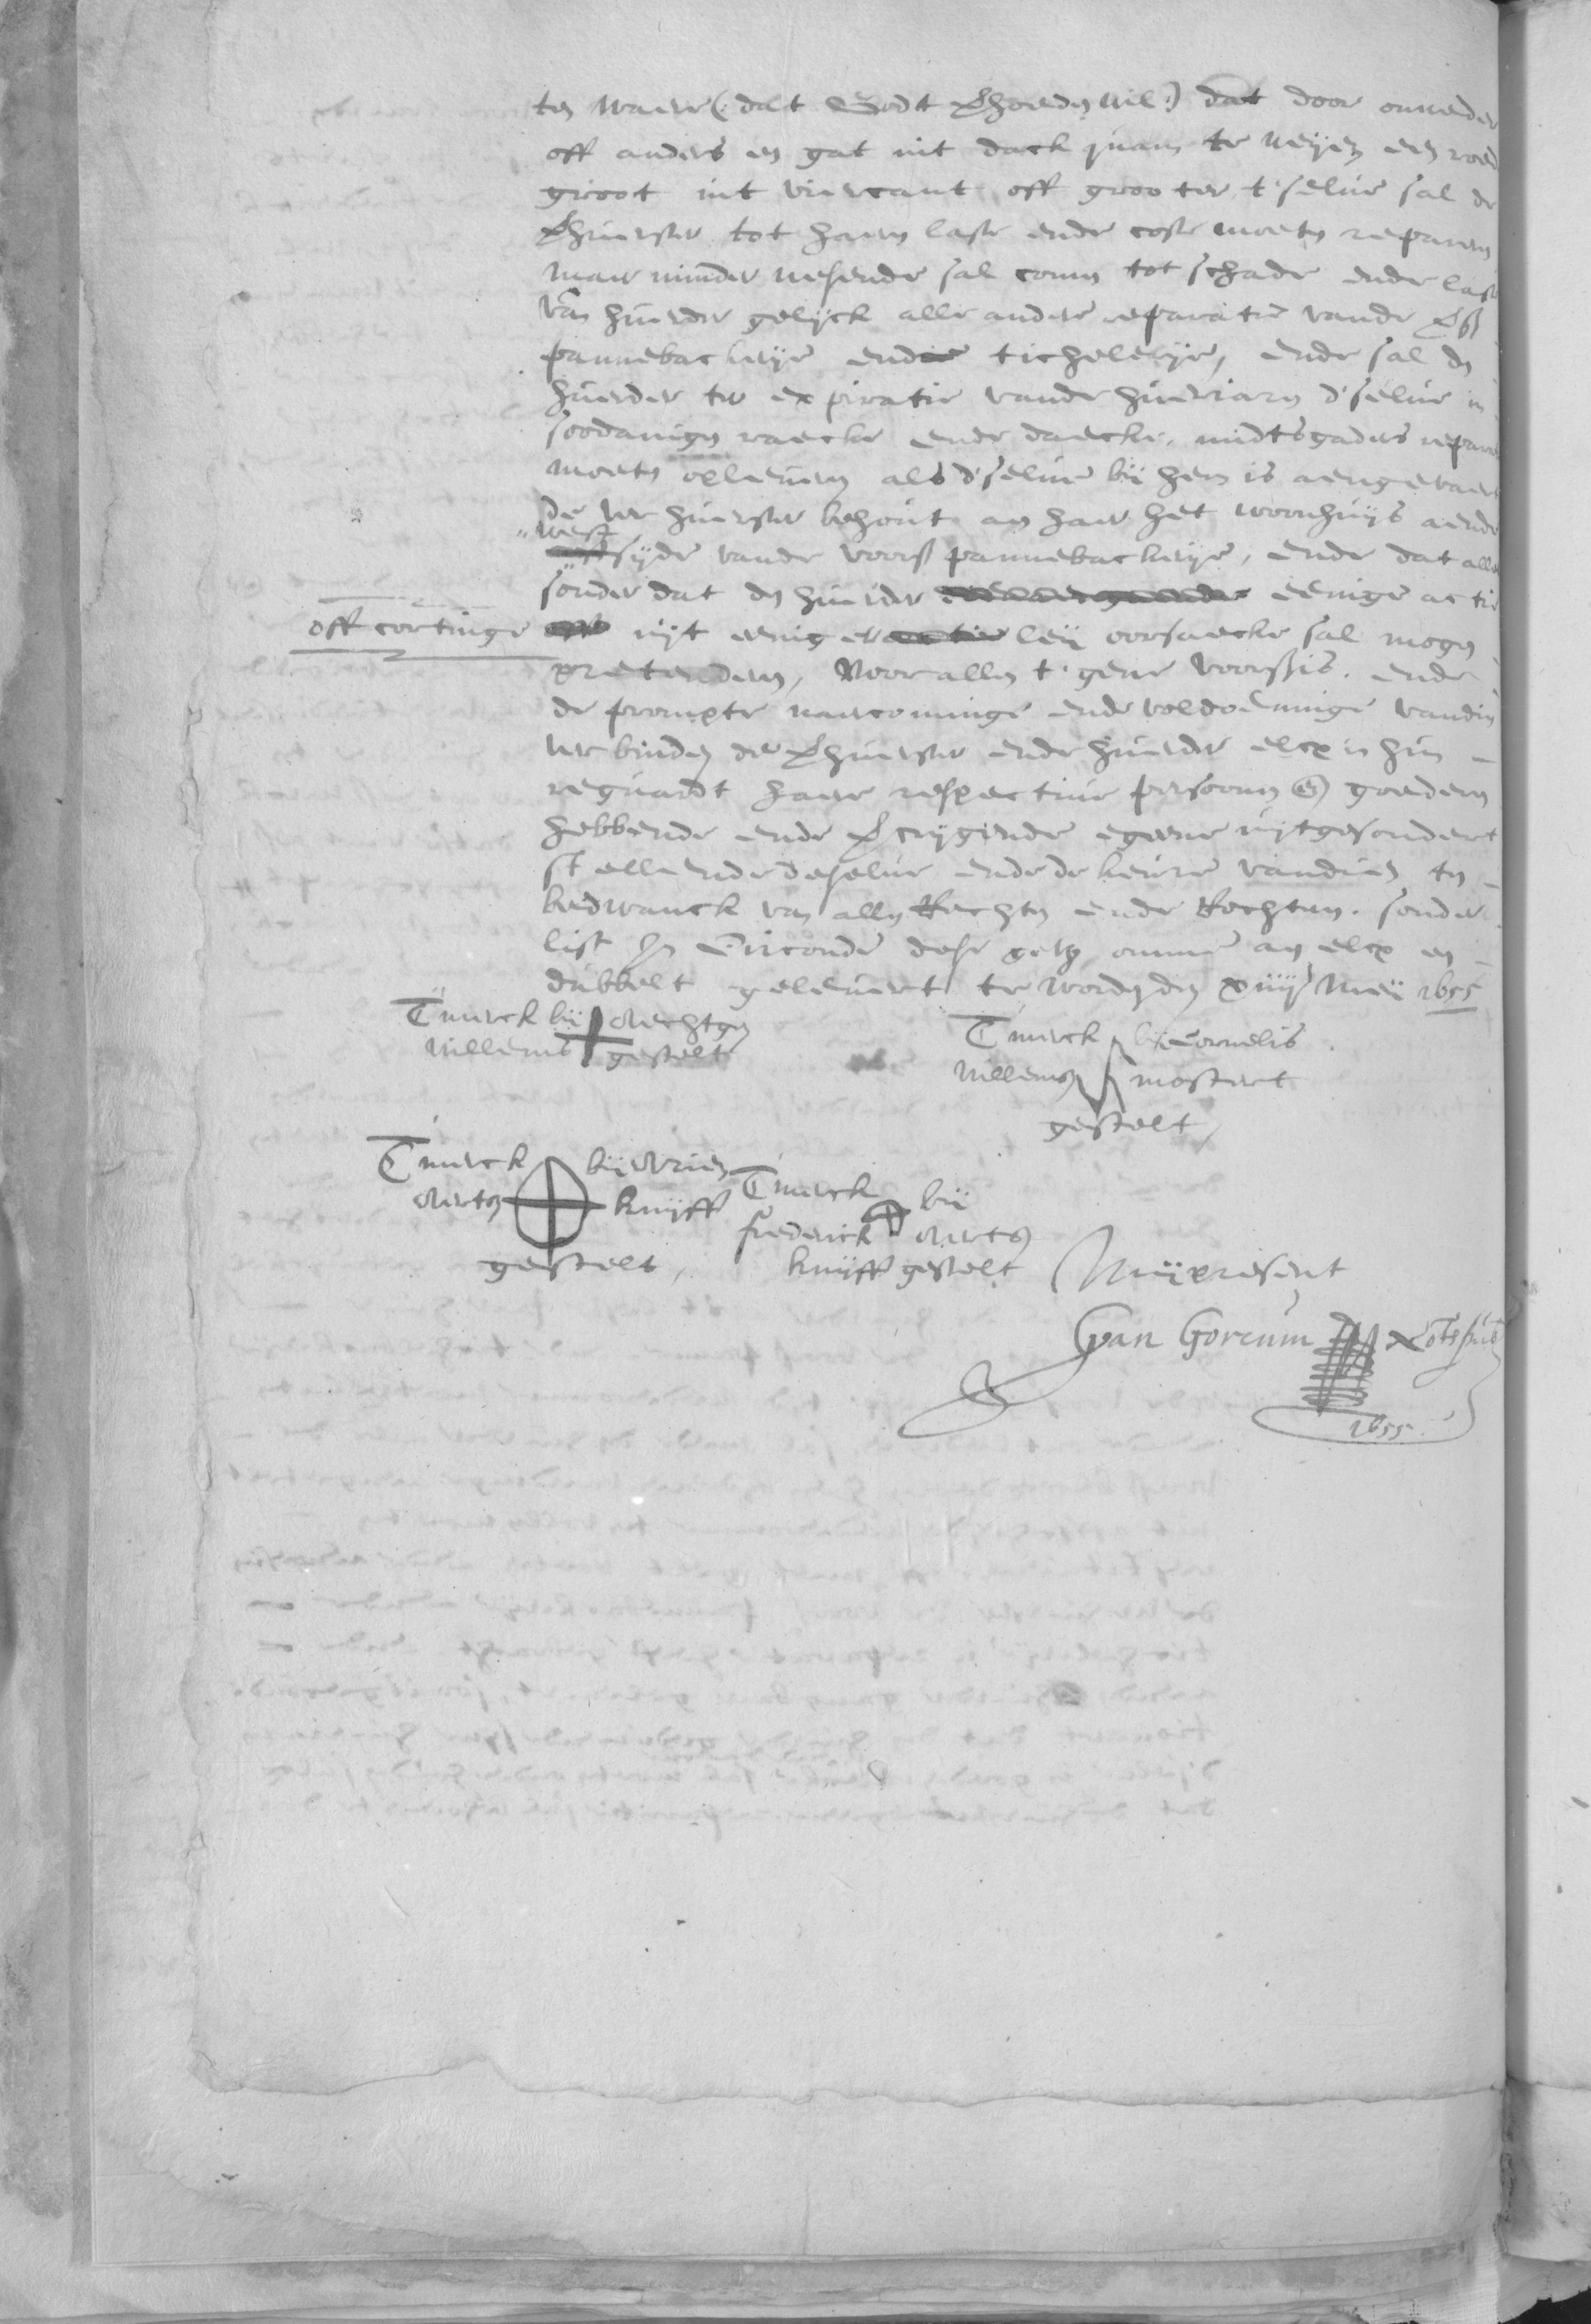 ten waere (: dat Godt verhoeden wil :) dat door onweder
off anders en gat int dack quam te weijen een roed
groot int viercant off grooter t'selve sal de
verhuerster tot haeren laste ende coste moeten repareren
maer minder wesende sal comen tot schade ende laste
van huerder gelijck alle andere reparatie vande vs
pannebackerije ende tichelerije, ende sal den
huerder ter expiratie vande huerjaren d'selve in
soodanigen raecke ende daecke, midtsgaders reparatie
moeten opleveren als d'selve bij hem is aengevaert
de verhuerster behout aen haer het woonhuijs aende
west
sijde vande voors pannebackerije, ende dat alles
sonder dat den huerder eenige actie
off cortinge uijt eenigerleij oorsaecke sal mogen
pretenderen, Voor allen t'gene voors is. ende
de prompte naercominge ende voldoeninge vandien
verbinden de verhuerster ende huerder elcx in hun
reguardt haere respective persoonen en goederen
hebbende ende vercrijgende egeene uijtgesondert
stellende deselve ende de keure vandien ten
bedwanck van allen Rechten ende Rechteren. sonder
list In Oirconde dese omme aen elcx en
dubbelt gelevert te worden den xiiij Meij 1655
T'merck bij Aechtgen
Willems gestelt
T'merck bij Cornelis
Willemsz mostert
gestelt
T'merck bij Arien
Aertsz knijff
gestelt,
T'merck bij
frederick Aertsz
knijff gestelt
Mij present
G van Gorcum Nots pub
1655